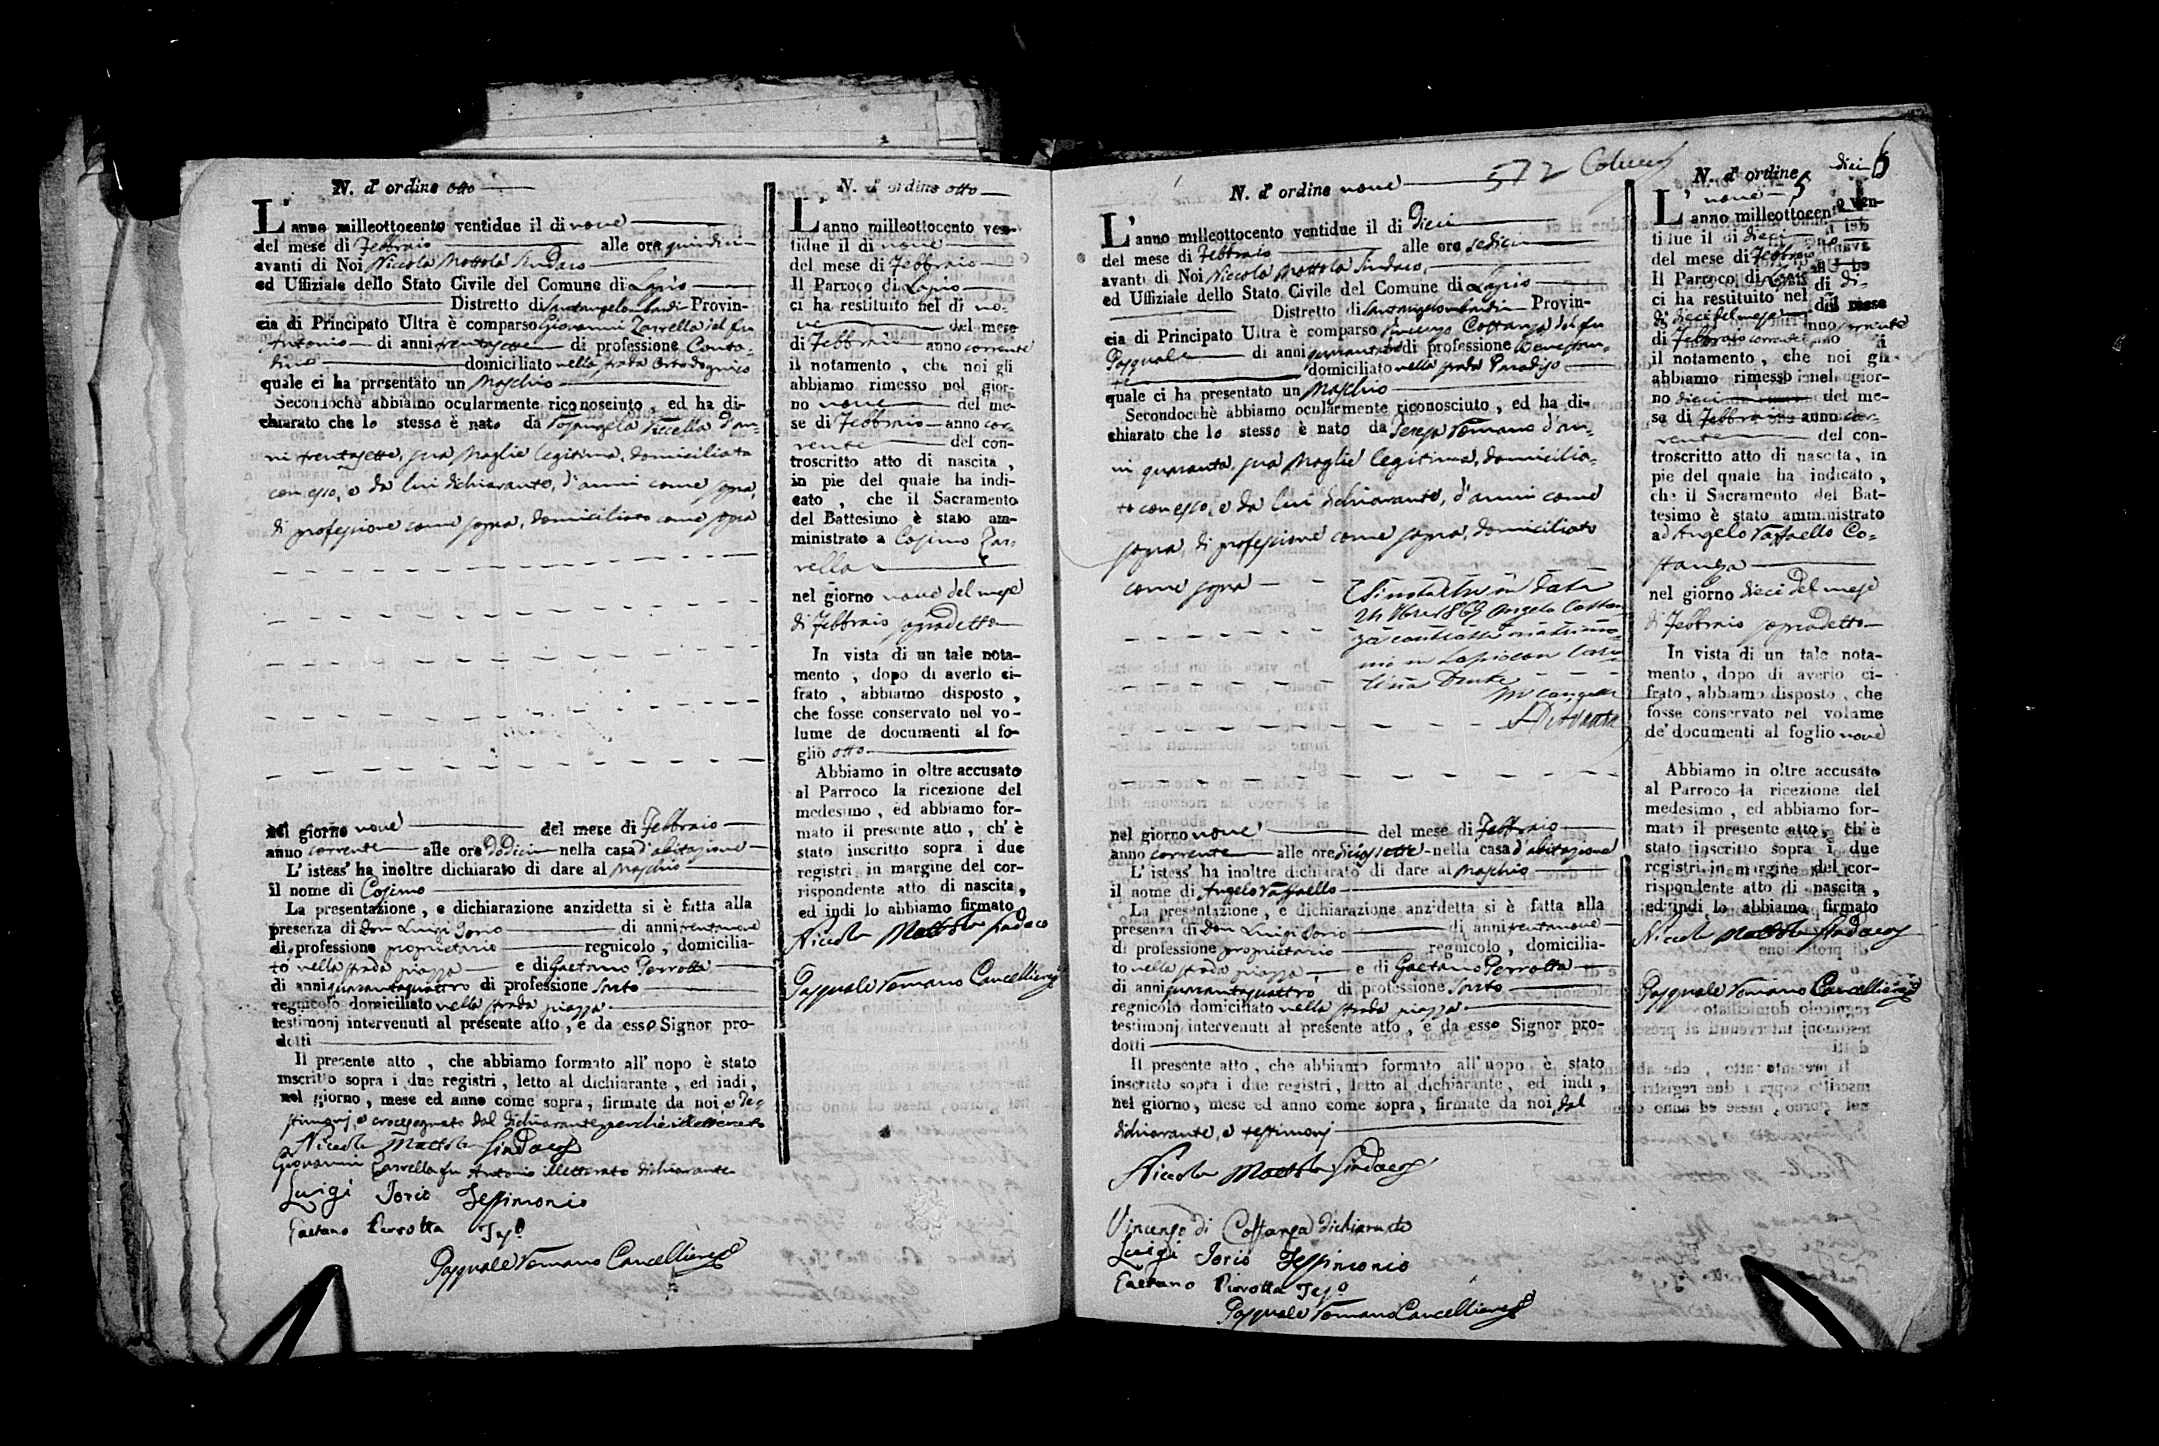 N. d' ordine otto
L' anno milleottocento ventidue il di nove
del mese di Febbraio alle ore quindici
avanti di Noi Niccola Mottola Sindaco
ed Uffiziale dello Stato Civile del Comune di Lapio
Distretto di Santangelombardi Provin-
cia di Principato Ultra è comparso Giovanni Zarrella del fu
Antonio di anni trentasette di professione Conta-
dino domiciliato nella strada
quale ci ha presentato un Maschio
Secondochè abbiamo ocularmente riconosciuto, ed ha di-
chiarato che lo stesso è nato da Rosangela Viccella d'an-
ni trentasette, sua Moglie legitima, domiciliata
con esso, e da lui dichiarante, d'anni come sopra,
di professione come sopra, domiciliato come sopra
nel giorno nove del mese di Febbraio
anno corrente alle ore Dodici nella casa d'abitazione
L' istess' ha inoltre dichiarato di dare al Maschio
il nome di Cosimo
La presentazione, e dichiarazione anzidetta si è fatta alla
presenza di Don Luigi Iorio di anni trentanove
di professione proprietario regnicolo, domicilia-
to nella strada piazza e di Gaetano Perrotta
di anni quarantaquattro di professione Sarto
regnicolo domiciliato nella strada piazza
testimonj intervenuti al presente atto, e da esso Signor pro-
dotti
Il presente atto, che abbiamo formato all' uopo è stato
inscritto sopra i due registri, letto al dichiarante, ed indi,
nel giorno, mese ed anno come sopra, firmate da noi e te-
stimonj, e crocesegnato dal dichiarante perchè illetterato
Niccola Mottola Sindaco
Giovanni Zarrella fu Antonio illetterato dichiarante
Luigi Iorio Testimonio
Gaetano Perrotta Tes.o
Pasquale Romano Cancelliere
N. d' ordine otto
L' anno milleottocento ven-
tidue il di nove
del mese di Febbraio
Il Parroco di Lapio
ci ha restituito nel di no-
ve del mese
di Febbraio anno corrente
il notamento, che noi gli
abbiamo rimesso nel gior-
no nove del me-
se di Febbraio anno cor-
rente del con-
troscritto atto di nascita,
in pie del quale ha indi-
cato, che il Sacramento
del Battesimo è stato am-
ministrato a Cosimo Zar-
rella
nel giorno nove del mese
di Febbraio sopradetto
In vista di un tale nota-
mento, dopo di averlo ci-
frato, abbiamo disposto,
che fosse conservato nel vo-
lume de documenti al fo-
glio otto
Abbiamo in oltre accusato
al Parroco la ricezione del
medesimo, ed abbiamo for-
mato il presente atto, ch' è
stato inscritto sopra i due
registri in margine del cor-
rispondente atto di nascita,
ed indi lo abbiamo firmato
Niccola Mottola Sindaco
Pasquale Romano Cancelliere
572
N. d' ordine nove
L' anno milleottocento ventidue il di Dieci
del mese di Febbraio alle ore sedici
avanti di Noi Niccola Mottola Sindaco,
ed Uffiziale dello Stato Civile del Comune di Lapio
Distretto di Santangelombardi Provin-
cia di Principato Ultra è comparso Vincenzo Costanza del fu
Pasquale di anni di professione Benestan-
te domiciliato nella strada Paradiso
quale ci ha presentato un Maschio
Secondochè abbiamo ocularmente riconosciuto, ed ha di-
chiarato che lo stesso è nato da Teresa Romano d'an-
ni quaranta, sua Moglie legitima, domicilia-
ta con esso, e da lui dichiarante, d'anni come
sopra, di professione come sopra, domiciliato
come sopra
Si nota che in data
24 1869 Angelo Costan
za contratto matrimo-
nio in Lapio con
nel giorno nove del mese di Febbraio
anno corrente alle ore diciassette nella casa d'abitazione
L' istess' ha inoltre dichiarato di dare al Maschio
il nome di Angelo Raffaello
La presentazione, e dichiarazione anzidetta si è fatta alla
presenza di Don Luigi Iorio di anni trentanove
di professione proprietario regnicolo, domicilia-
to nella strada piazza, e di Gaetano Perrotta
di anni quarantaquattro di professione Sarto
regnicolo domiciliato nella strada piazza
testimonj intervenuti al presente atto, e da esso Signor pro-
dotti
Il presente atto, che abbiamo formato all' uopo è stato
inscritto sopra i due registri, letto al dichiarante, ed indi,
nel giorno, mese ed anno come sopra, firmate da noi, dal
dichiarante, e testimonj
Niccola Mottola Sindaco
Vincenzo di Costanza dichiarante
Luigi Iorio Testimonio
Gaetano Pirrotta Tes.o
Pasquale Romano Cancelliere
dieci 6
N. d' ordine
nove 5
L' anno milleottocento ven-
tidue il di dieci
del mese di Febbraio
Il Parroco di Lapio
ci ha restituito nel di
dieci del mese
di Febbraio corrente anno
il notamento, che noi gli
abbiamo rimesso nel gior-
no dieci del me-
se di Febbraio anno cor-
rente del con-
troscritto atto di nascita, in
pie del quale ha indicato,
che il Sacramento del Bat-
tesimo è stato amministrato
ad Angelo Raffaello Co-
stanza
nel giorno dieci del mese
di Febbraio sopradetto
In vista di un tale nota-
mento, dopo di averlo ci-
frato, abbiamo disposto, che
fosse conservato nel volume
de' documenti al foglio nove
Abbiamo in oltre accusato
al Parroco la ricezione del
medesimo, ed abbiamo for-
mato il presente atto, ch' è
stato inscritto sopra i due
registri in margine del cor-
rispondente atto di nascita,
ed indi lo abbiamo firmato
Niccola Mottola Sindaco
Pasquale Romano Cancelliere